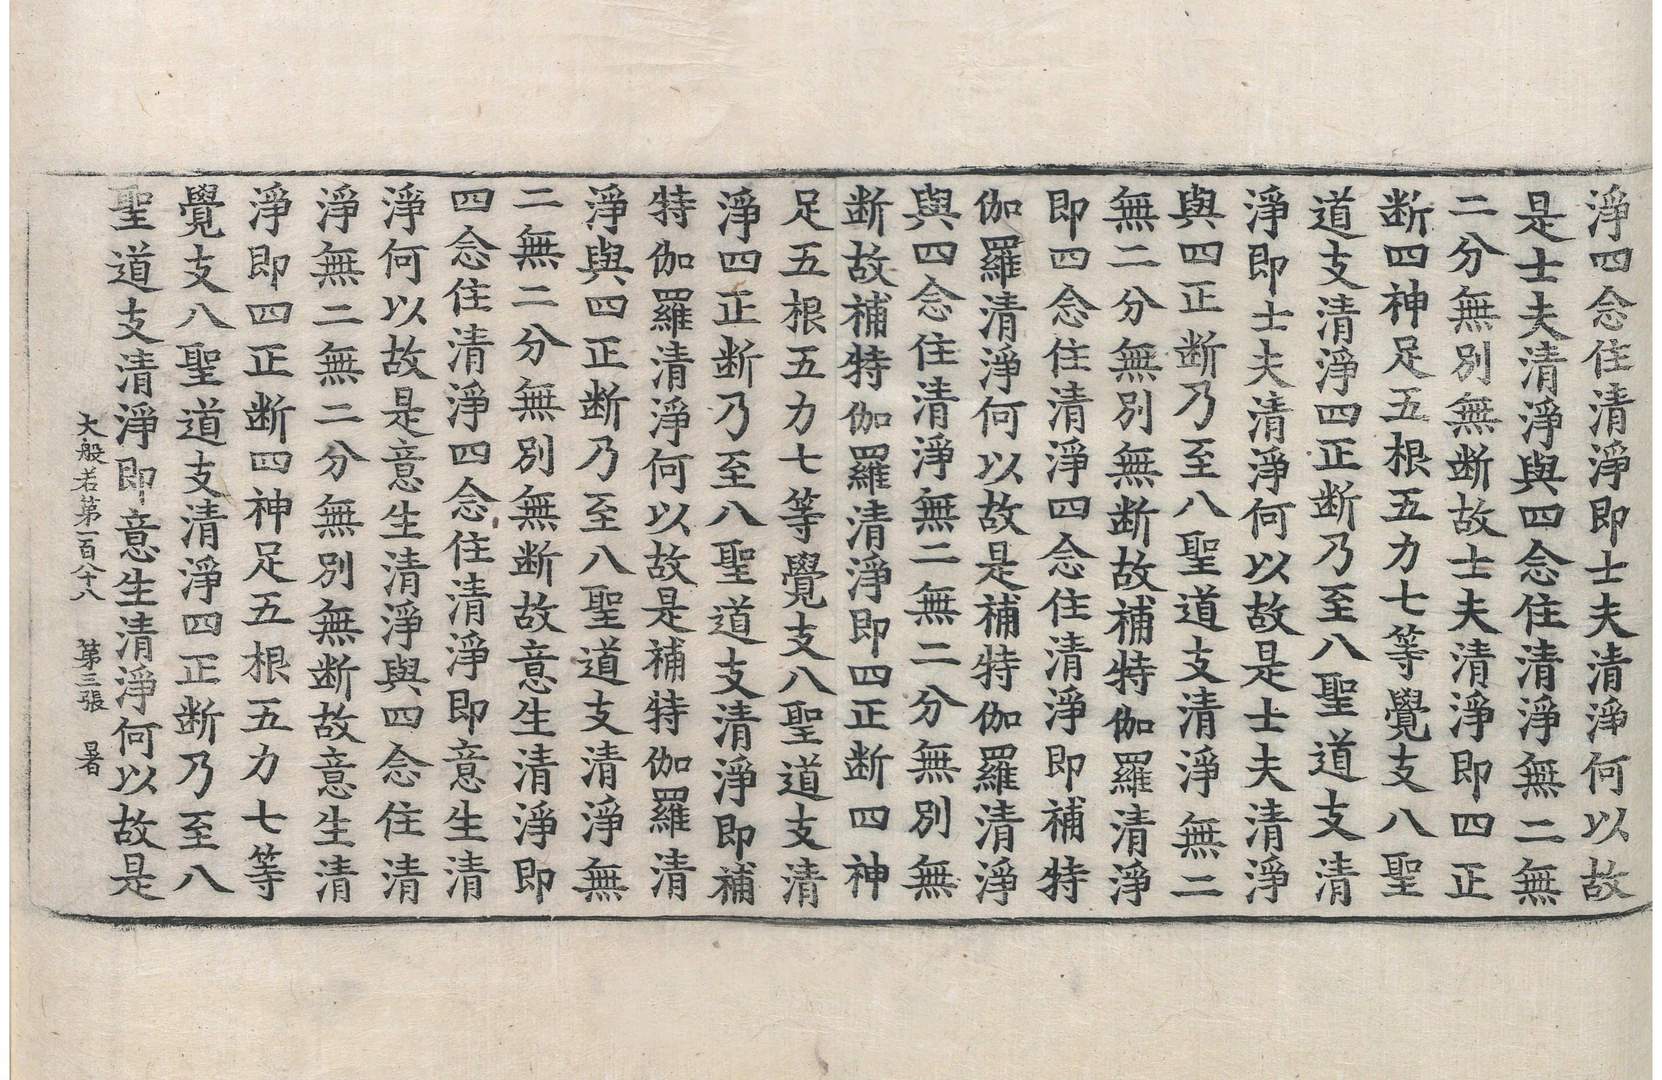 淨四念住清淨即士夫清淨何以故
是士夫清淨與四念住清淨無二無
二分無別無断故士夫清淨即四正
断四神足五根五力七等覺支八聖
道支清淨四正断乃至八聖道支清
淨即士夫清淨何以故是士夫清淨
與四正断乃至八聖道支清淨無二
無二分無別無断故補特伽羅清淨
即四念住清淨四念住清淨即補特
伽羅清淨何以故是補特伽羅清淨
與四念住清淨無二無二分無別無
断故補特伽羅清淨即四正断四神
足五根五力七等覺支八聖道支清
淨四正断乃至八聖道支清淨即補
特伽羅清淨何以故是補特伽羅清
淨與四正断乃至八聖道支清淨無
二無二分無別無断故意生清淨即
四念住清淨四念住清淨即意生清
淨何以故是意生清淨與四念住清
淨無二無二分無別無断故意生清
淨即四正断四神足五根五力七等
覺支八聖道支清淨四正断乃至八
聖道支清淨即意生清淨何以故是
大般若第一百八十八 第三張 暑